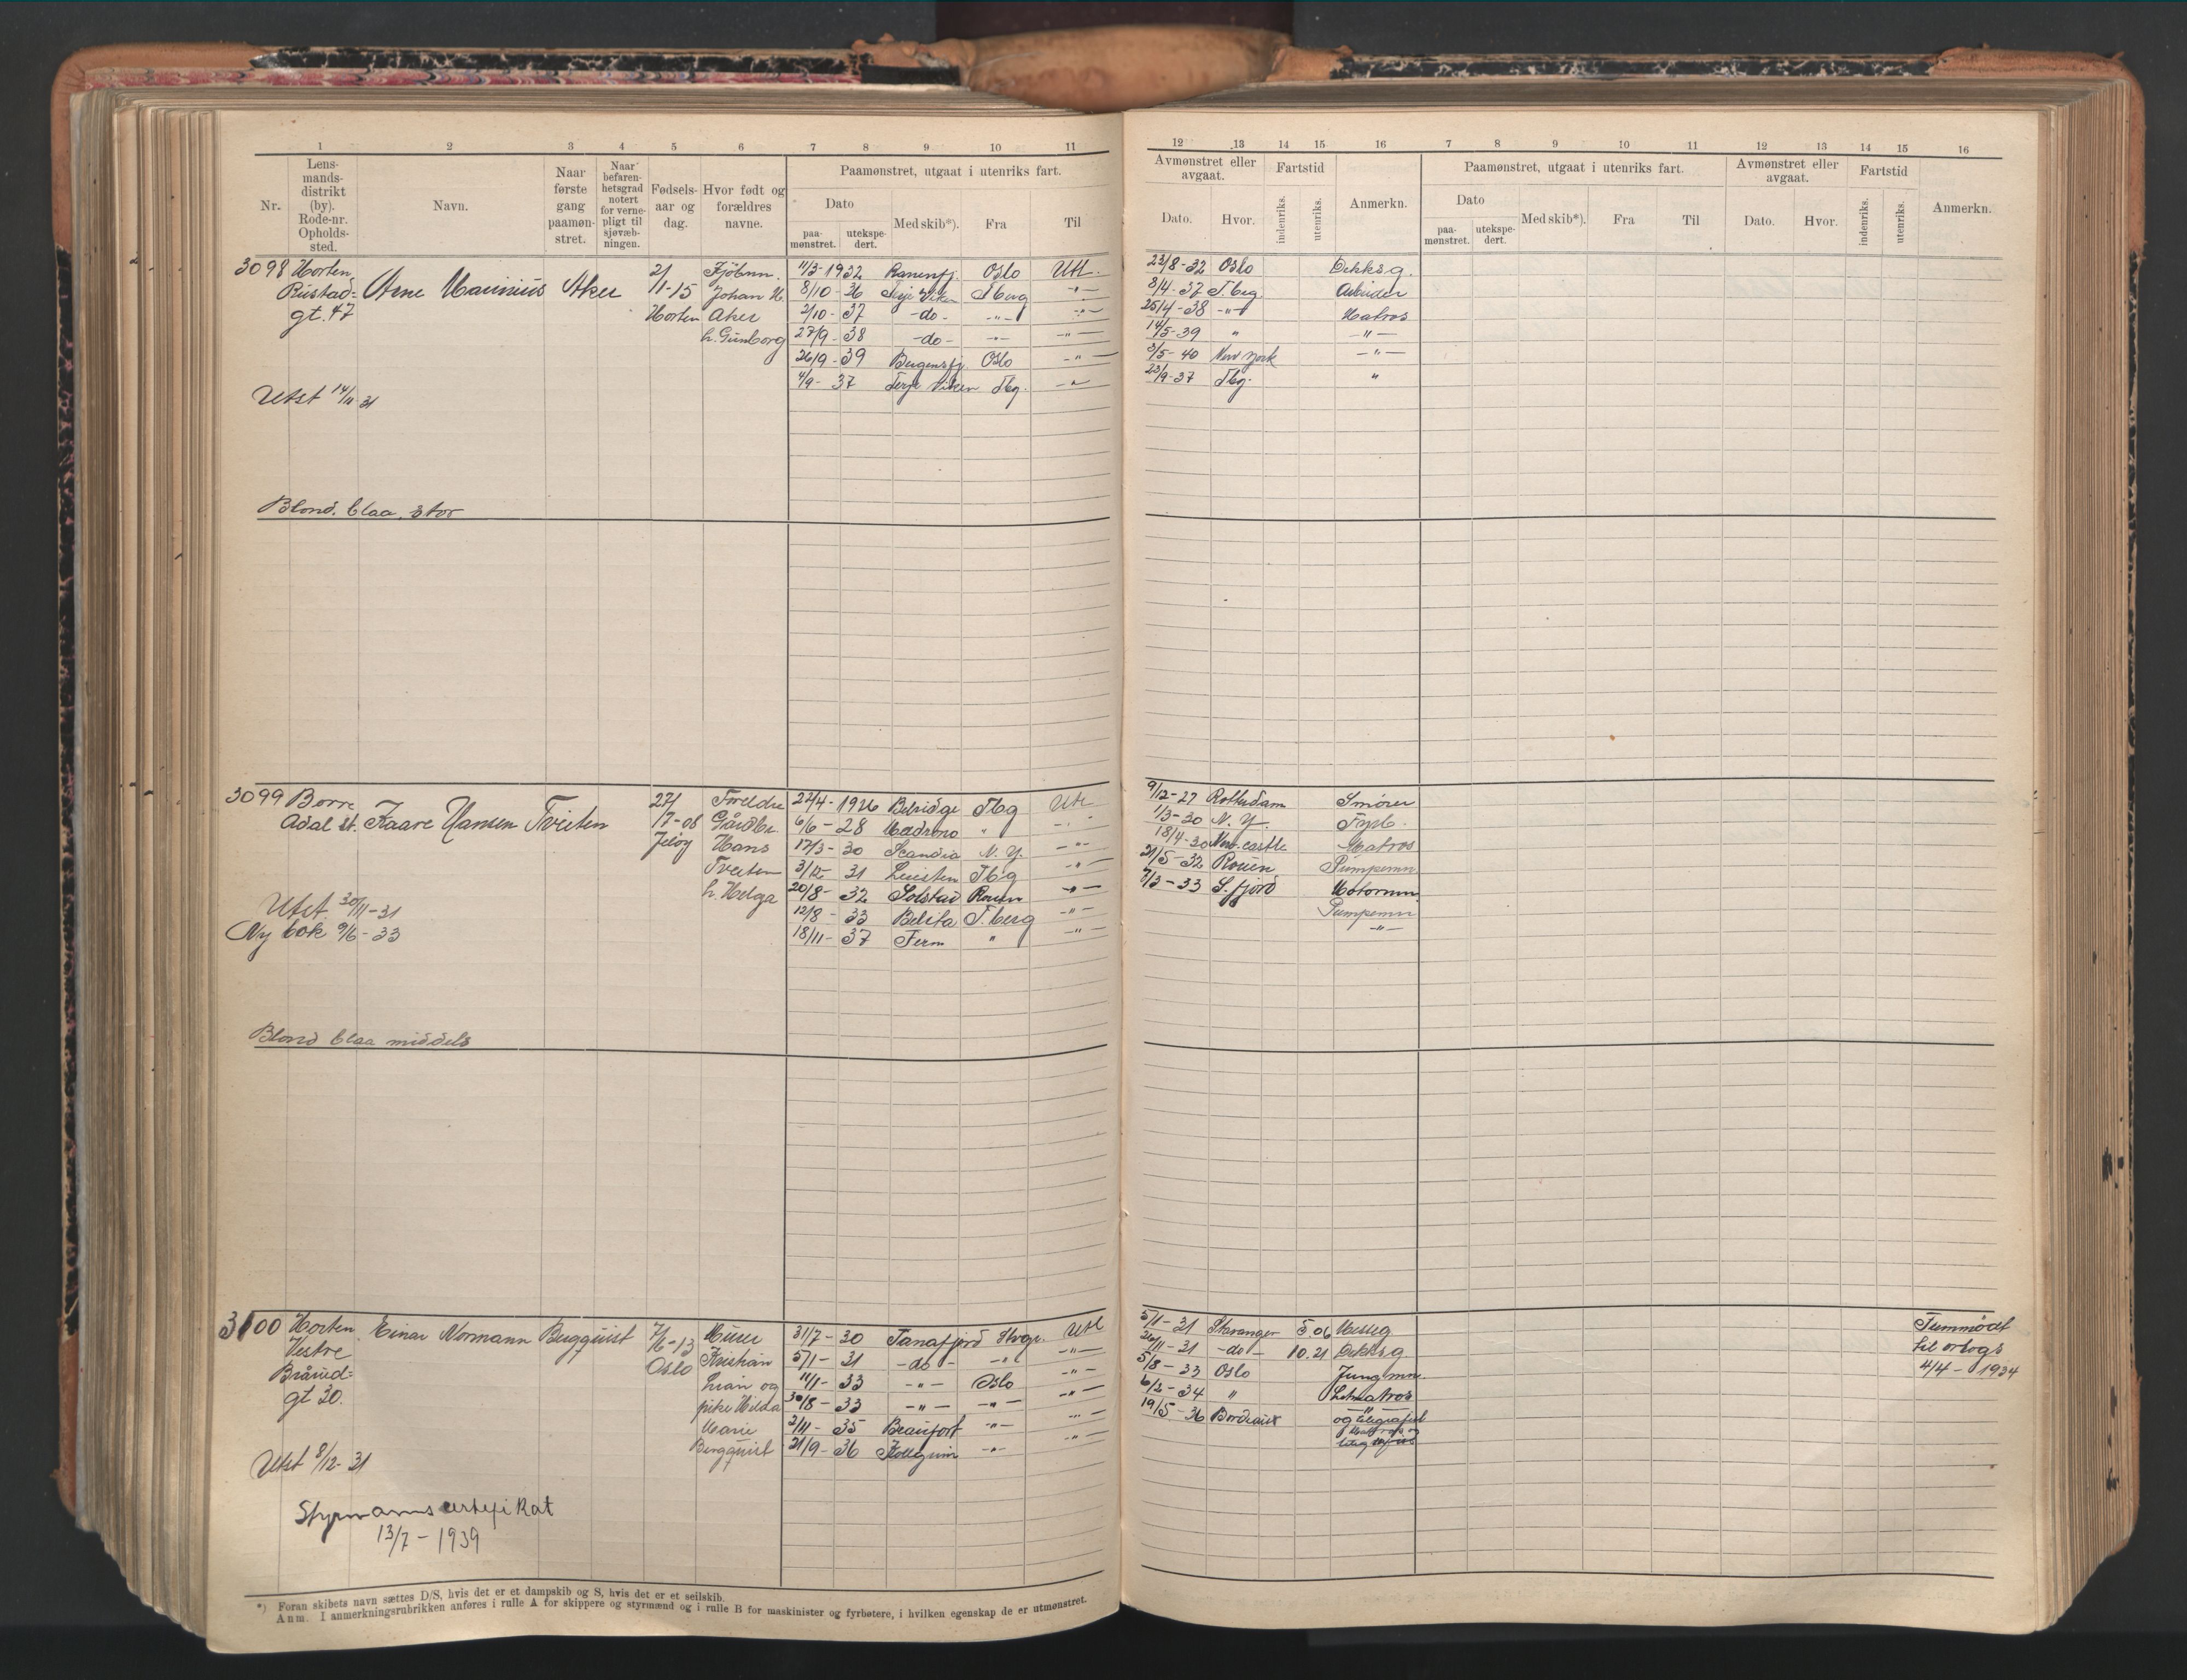 1 2 3 4 5 6 7 8 9 10 11
Nr.
Lens-
mands-
distrikt
(by).
Rode-nr.
Opholds-
sted.
Navn.
Naar
første
gang
paamøn-
stret.
Naar
befaren-
hetsgrad
notert
for verne-
pligt til
sjøvæb-
ningen.
Fødsels-
aar og
dag.
Hvor født og
forældres
navne.
Paamønstret, utgaat i utenriks fart.
Dato
paa-
mønstret.
utekspe-
dert.
Med skib*).
Fra
Til
3098 Horten Arne Marinius Aker 2/ Fjøbmn. 11/3-1932 Ranenfj. Oslo Utl.
Rustad- 11-15 Johan H. 8/10-36 Terje Viken T.berg -"-
gt. 47 Horten Aker 2/10-37 -do- -"- -"-
h. Gunborg 27/9-38 -do- -"- -"-
26/9-39 Bergensfj. Oslo -"-
4/9-37 Terje Viken Tbg. -"-
Utst 14/11 31
Blond. blaa. stor
3099 Borre Kaare Hansen Tveiten 27/ Foreldre 22/4-1926 Belridge Tbg Utl
Adal st. 7-08 Gårdbr. 6/6-28 Madrono " -"-
Jeløy Hans 17/3-30 Scandia N.Y. -"-
Tveiten 3/12 31 Tbg -"-
h. Helga 20/8-32 Solstad Rouen -"-
12/8-33 Belita T.berg -"-
18/11-37 Ferm " -"-
Utst. 30/11-31
Ny bok 9/6-33
Blond blaa middels
3100 Horten Einar Normann Bergquist 7/ Murer 31/7-30 Tanafjord Stvgr. Utl
Vestre 6-13 Kristian 5/1-31 -do- -"- -"-
Brårud- Oslo Lian og 11/1-33 -"- Oslo -"-
gt 30. pike Hilda 30/8-33 -"- -"- -"-
Marie 2/11-35 Beaufort -"- -"-
Bergquist 21/9-36 -"- -"-
Utst 8/12-31
Styrmannscertifikat
13/7-1939
*) Foran skibets navn sættes D/S, hvis det er et dampskib og S, hvis det er et seilskib.
Anm. I anmerkningsrubrikken anføres i rulle A for skippere og styrmænd og i rulle B for maskinister og fyrbøtere, i hvilken egenskap de er utmønstret.
12 13 14 15 16 7 8 9 10 11 12 13 14 15 16
Avmønstret eller
avgaat.
Dato. Hvor.
Fartstid
indenriks.
utenriks.
Anmerkn.
Paamønstret, utgaat i utenriks fart.
Dato
paa-
mønstret.
utekspe-
dert.
Med skib*).
Fra
Til
Avmønstret eller
avgaat.
Dato. Hvor.
Fartstid
indenriks.
utenriks.
Anmerkn.
23/8-32 Oslo Dekksg.
8/4-37 T.beg. Arbeider
25/4-38 -"- Matros
14/5-39 " -"-
3/5-40 New York -"-
23/9-37 Tbg. "
9/12-27 Rotterdam Smører
1/3-30 N.Y. Fyrb.
18/4-30 New.castle Matros
21/5-32 Rouen Pumpemn
7/3-33 S.fjord Motormn
Pumpemn
-"-
5/1-31 Stavanger 5.06 Messg Fummødt
26/11-31 -do- 10.21 Dekksg. til orlogs
5/8-33 Oslo Jungmn. 4/4-1934
6/2-34 " Letmatros
19/5-36 Bordeaux -"-
og telegrafist
Matros og
telegrafist